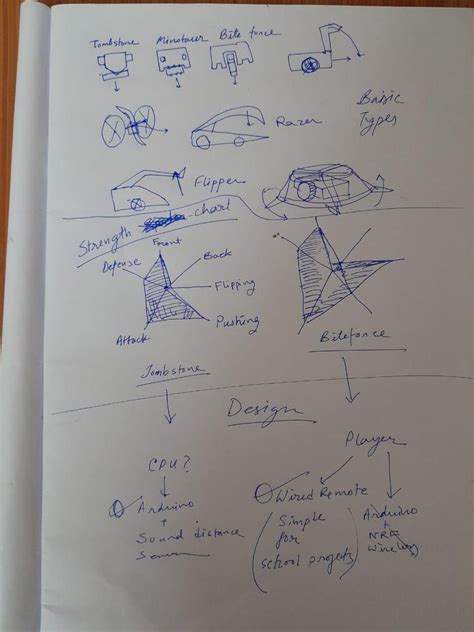 Tombstone Minotaur Bite force
Razer
Baisic
Types
Flipper
Strength chart
Front
Defense
Back
Flipping
Pushing
Attack
Tombstone
Biteforce
Design
Player
CPU?
Arduino
+
Sound distance
Wired Remote
Simple
for
school projects
Arduino
+
NRF
Wireless